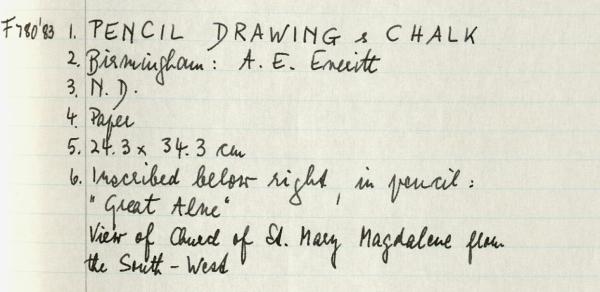 F780'83 1. PENCIL DRAWING & CHALK
2. Birmingham: A. E. Everitt
3. N.D.
4. Paper
5. 24.3 x 34.3 cm
6. Inscribed below right, in pencil:
"Great Alne"
View of Church of St. Mary Magdalene from
the South-West